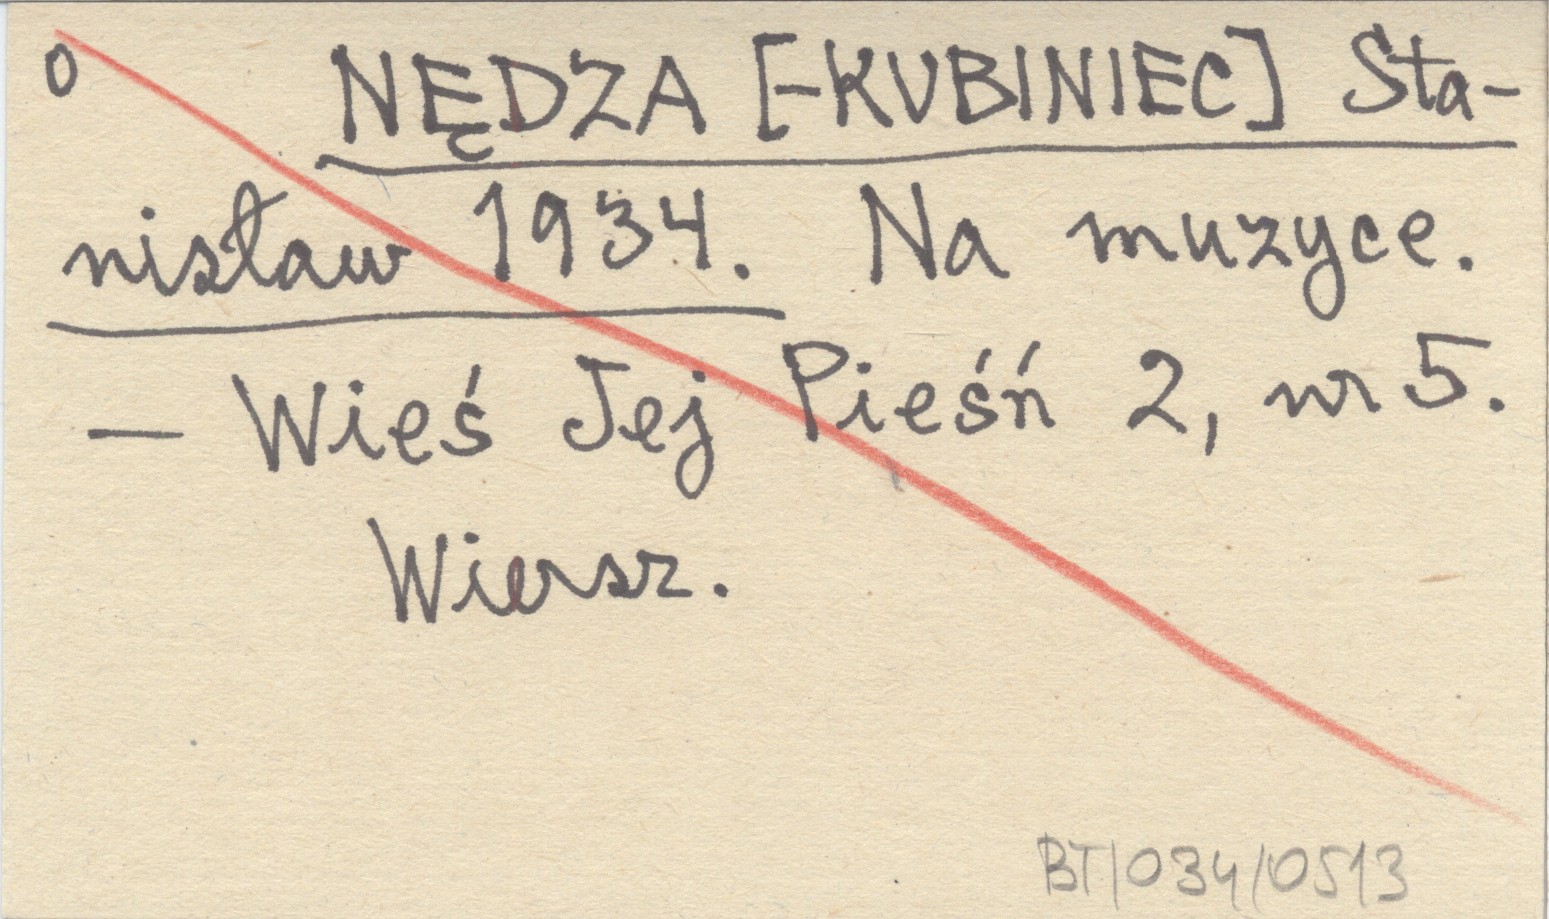 o NĘDZA [-KUBINIEC] Sta-
nisław 1934. Na muzyce.
— Wieś Jej Pieśń 2, nr 5.
Wiersz.
BT/034/0513